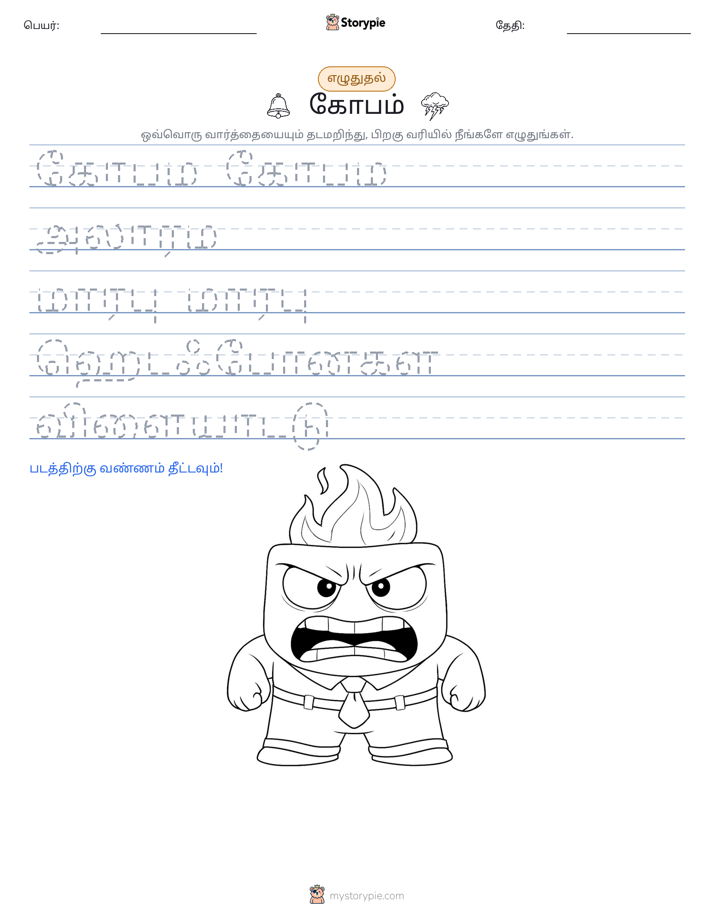 பெயர்:
Storypie
தேதி:
எழுதுதல்
கோபம்
ஒவ்வொரு வார்த்தையையும் தடமறிந்து, பிறகு வரியில் நீங்களே எழுதுங்கள்.
கோபம கோபம
அலாரம
மாரபு மாரபு
ஹெடஃபோனகள
விளையாடடு
படத்திற்கு வண்ணம் தீட்டவும்!
mystorypie.com